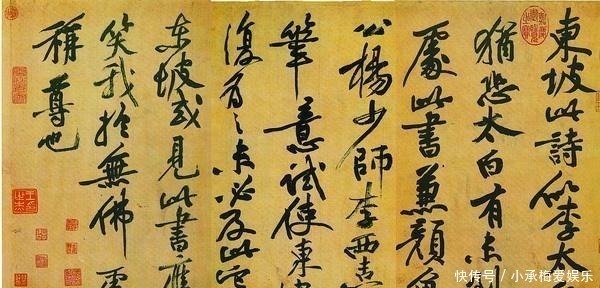 東坡此詩似李太
猶恐太白有未
處此書兼顏
公楊少師李西
筆意試使東
復為之未必及此它
東坡或見此書應
笑我於無佛
稱尊也
快传号 / 小承梅爱娱乐